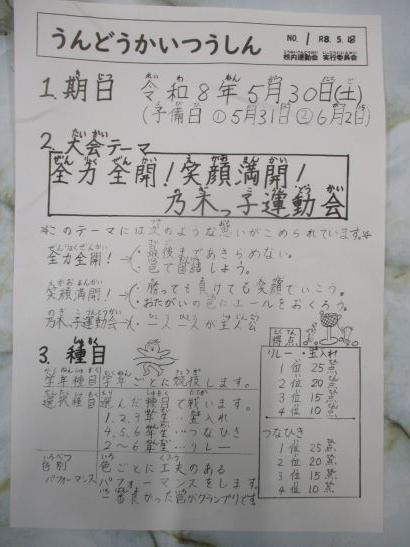 うんどうかいつうしん
NO. 1 R8. 5. 18
校内運動会 実行委員会
1. 期日 令和8年5月30日(土)
(予備日 ①5月31日 ②6月2日)
2. 大会テーマ
全力全開!笑顔満開!
乃木っ子運動会
このテーマには次のような思いがこめられています。
全力全開! → ・最後まであきらめない。
・色で団結しよう。
笑顔満開! → ・勝っても負けても笑顔でいこう。
・おたがいの色にエールをおくろう。
乃木っ子運動会 → ・一人一人が主人公
3. 種目
学年種目 学年ごとに競技します。
選択種目 選んだ種目で戦います。
1, 2, 3年生…玉入れ
4, 5, 6年生…つなひき
2~6年生…リレー
色別パフォーマンス 色ごとに工夫のある
パフォーマンスをします。
一番良かった色がグランプリです。
得点
リレー・玉入れ
1位 25点
2位 20点
3位 15点
4位 10点
つなひき
1位 25点
2位 20点
3位 15点
4位 10点